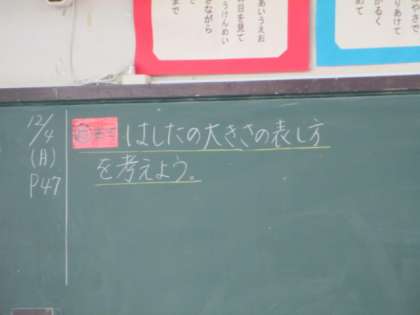 あいうえお
目を見て
きながら
うけんめい
まで
やで
りあけて
かるく
めて
12/4
(月)
P47
はしたの大きさの表し方
を考えよう。